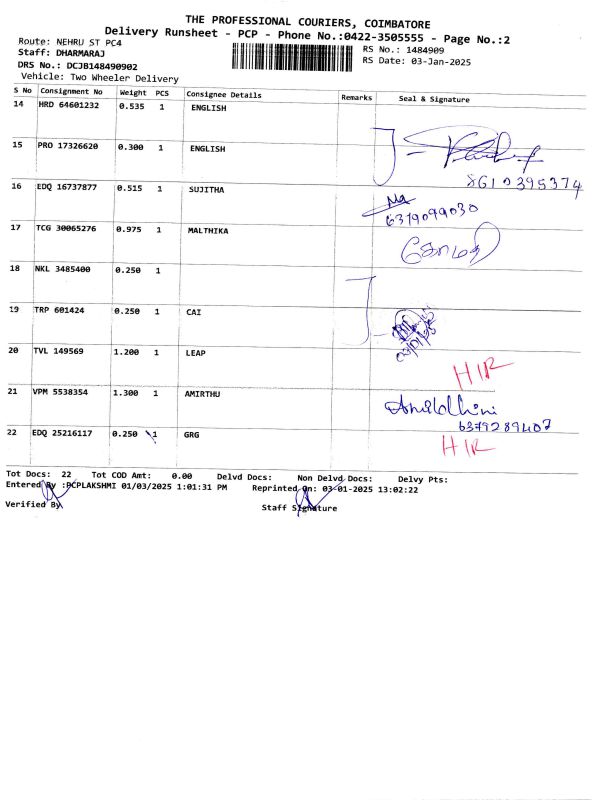 THE PROFESSIONAL COURIERS, COIMBATORE
Delivery Runsheet - PCP - Phone No.:0422-3505555 - Page No.:2
Route: NEHRU ST PC4
RS No.: 1484909
Staff: DHARMARAJ
RS Date: 03-Jan-2025
DRS No.: DCJB148490902
Vehicle: Two Wheeler Delivery
S No Consignment No Weight PCS Consignee Details Remarks Seal & Signature
14 HRD 64601232 0.535 1 ENGLISH
15 PRO 17326620 0.300 1 ENGLISH
16 EDQ 16737877 0.515 1 SUJITHA
6379099030
17 TCG 30065276 0.975 1 MALTHIKA
கோமதி
18 NKL 3485400 0.250 1
19 TRP 601424 0.250 1 CAI
20 TVL 149569 1.200 1 LEAP
HIR
21 VPM 5538354 1.300 1 AMIRTHU
22 EDQ 25216117 0.250 1 GRG
HIR
Tot Docs: 22 Tot COD Amt: 0.00 Delvd Docs: Non Delvd Docs: Delvy Pts:
Entered By :PCPLAKSHMI 01/03/2025 1:01:31 PM Reprinted On: 03-01-2025 13:02:22
Verified By
Staff Signature